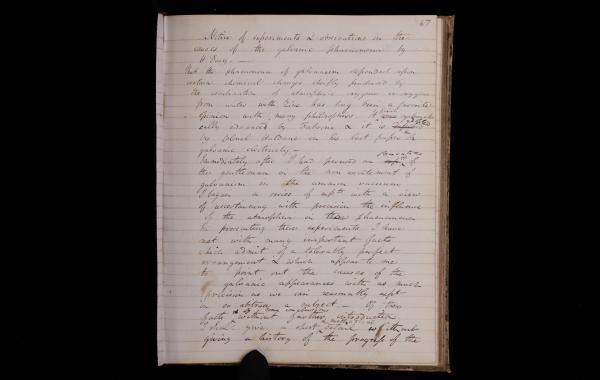 67
Notice of experiments & observations on the
causes of the galvanic phaenomena by
H Davy. —
That the phaenomena of galvanism depended upon
certain chemical changes chiefly produced by
the oxidation of atmospheric oxygene or oxygene
from water with Zinc has long been a favorite
opinion with many philosophers. It
advanced by Fabroni & it is
by colonel in his last paper on
galvanic electricity —
Immediately after I had perused an of
this gentleman on the non excitement of
galvanism in the common vacuum
I began a series of expts with a view
of ascertaining with precision the influence
of the atmosphere in these phaenomena
In prosecuting these experiments I have
met with many important facts
which admit of a tolerably perfect
arrangement & which appear to me
to point out the causes of the
galvanic appearances with as much
precision as we can reasonably expt
in so abstruse a subject — Of these
facts without further introduction
I shall give a short detail without
giving a history of the progress of the